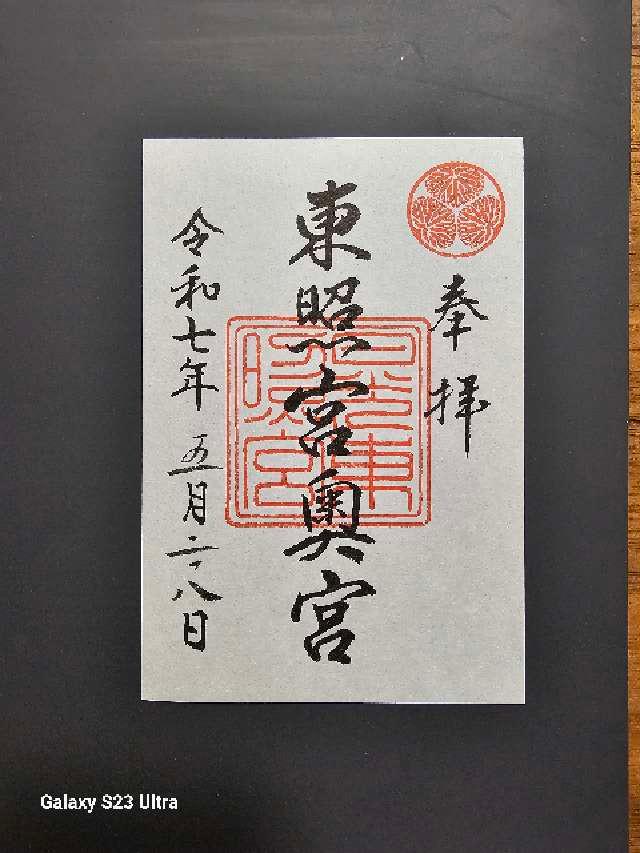 奉拝
東照宮奥宮
令和七年 五月二十八日
Galaxy S23 Ultra